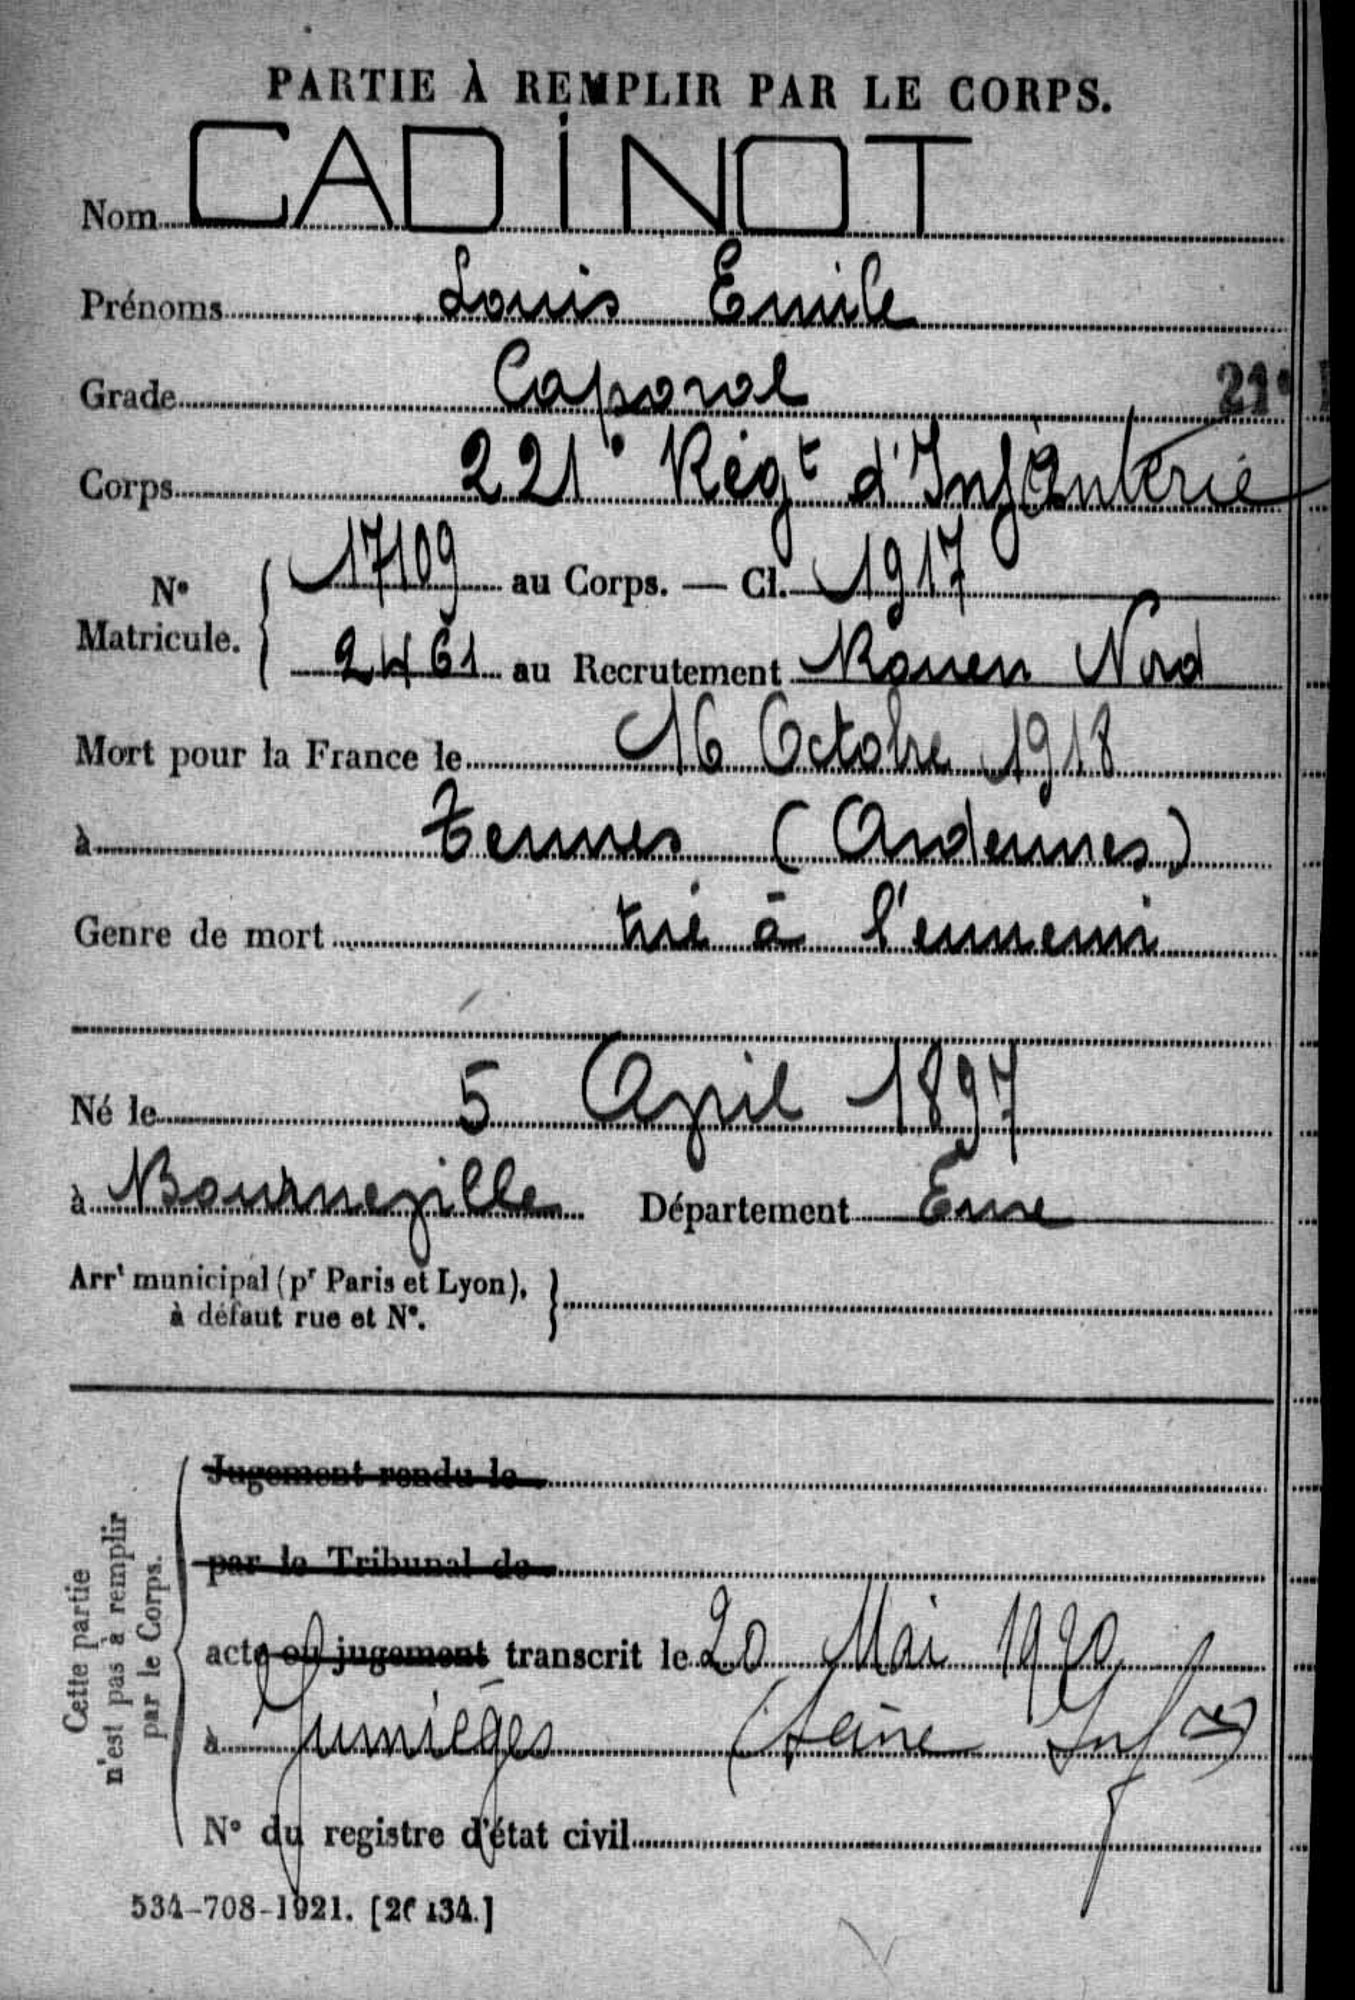 PARTIE À REMPLIR PAR LE CORPS.
Nom CADINOT
Prénoms Louis Emile
Grade Caporal
21e
Corps 221e Régt d'Infanterie
No Matricule. 17109 au Corps. — Cl. 1917
2461 au Recrutement Rouen Nord
Mort pour la France le 16 Octobre 1918
à Termes (Ardennes)
Genre de mort tué à l'ennemi
Né le 5 Avril 1897
à Bourneville Département Eure
Arrt municipal (pr Paris et Lyon),
à défaut rue et No.
Cette partie
n'est pas à remplir
par le Corps.
Jugement rendu le
par le Tribunal de
acte ou jugement transcrit le 20 Mai 1920
à Jumièges (Seine Infre)
No du registre d'état civil
534-708-1921. [26134.]